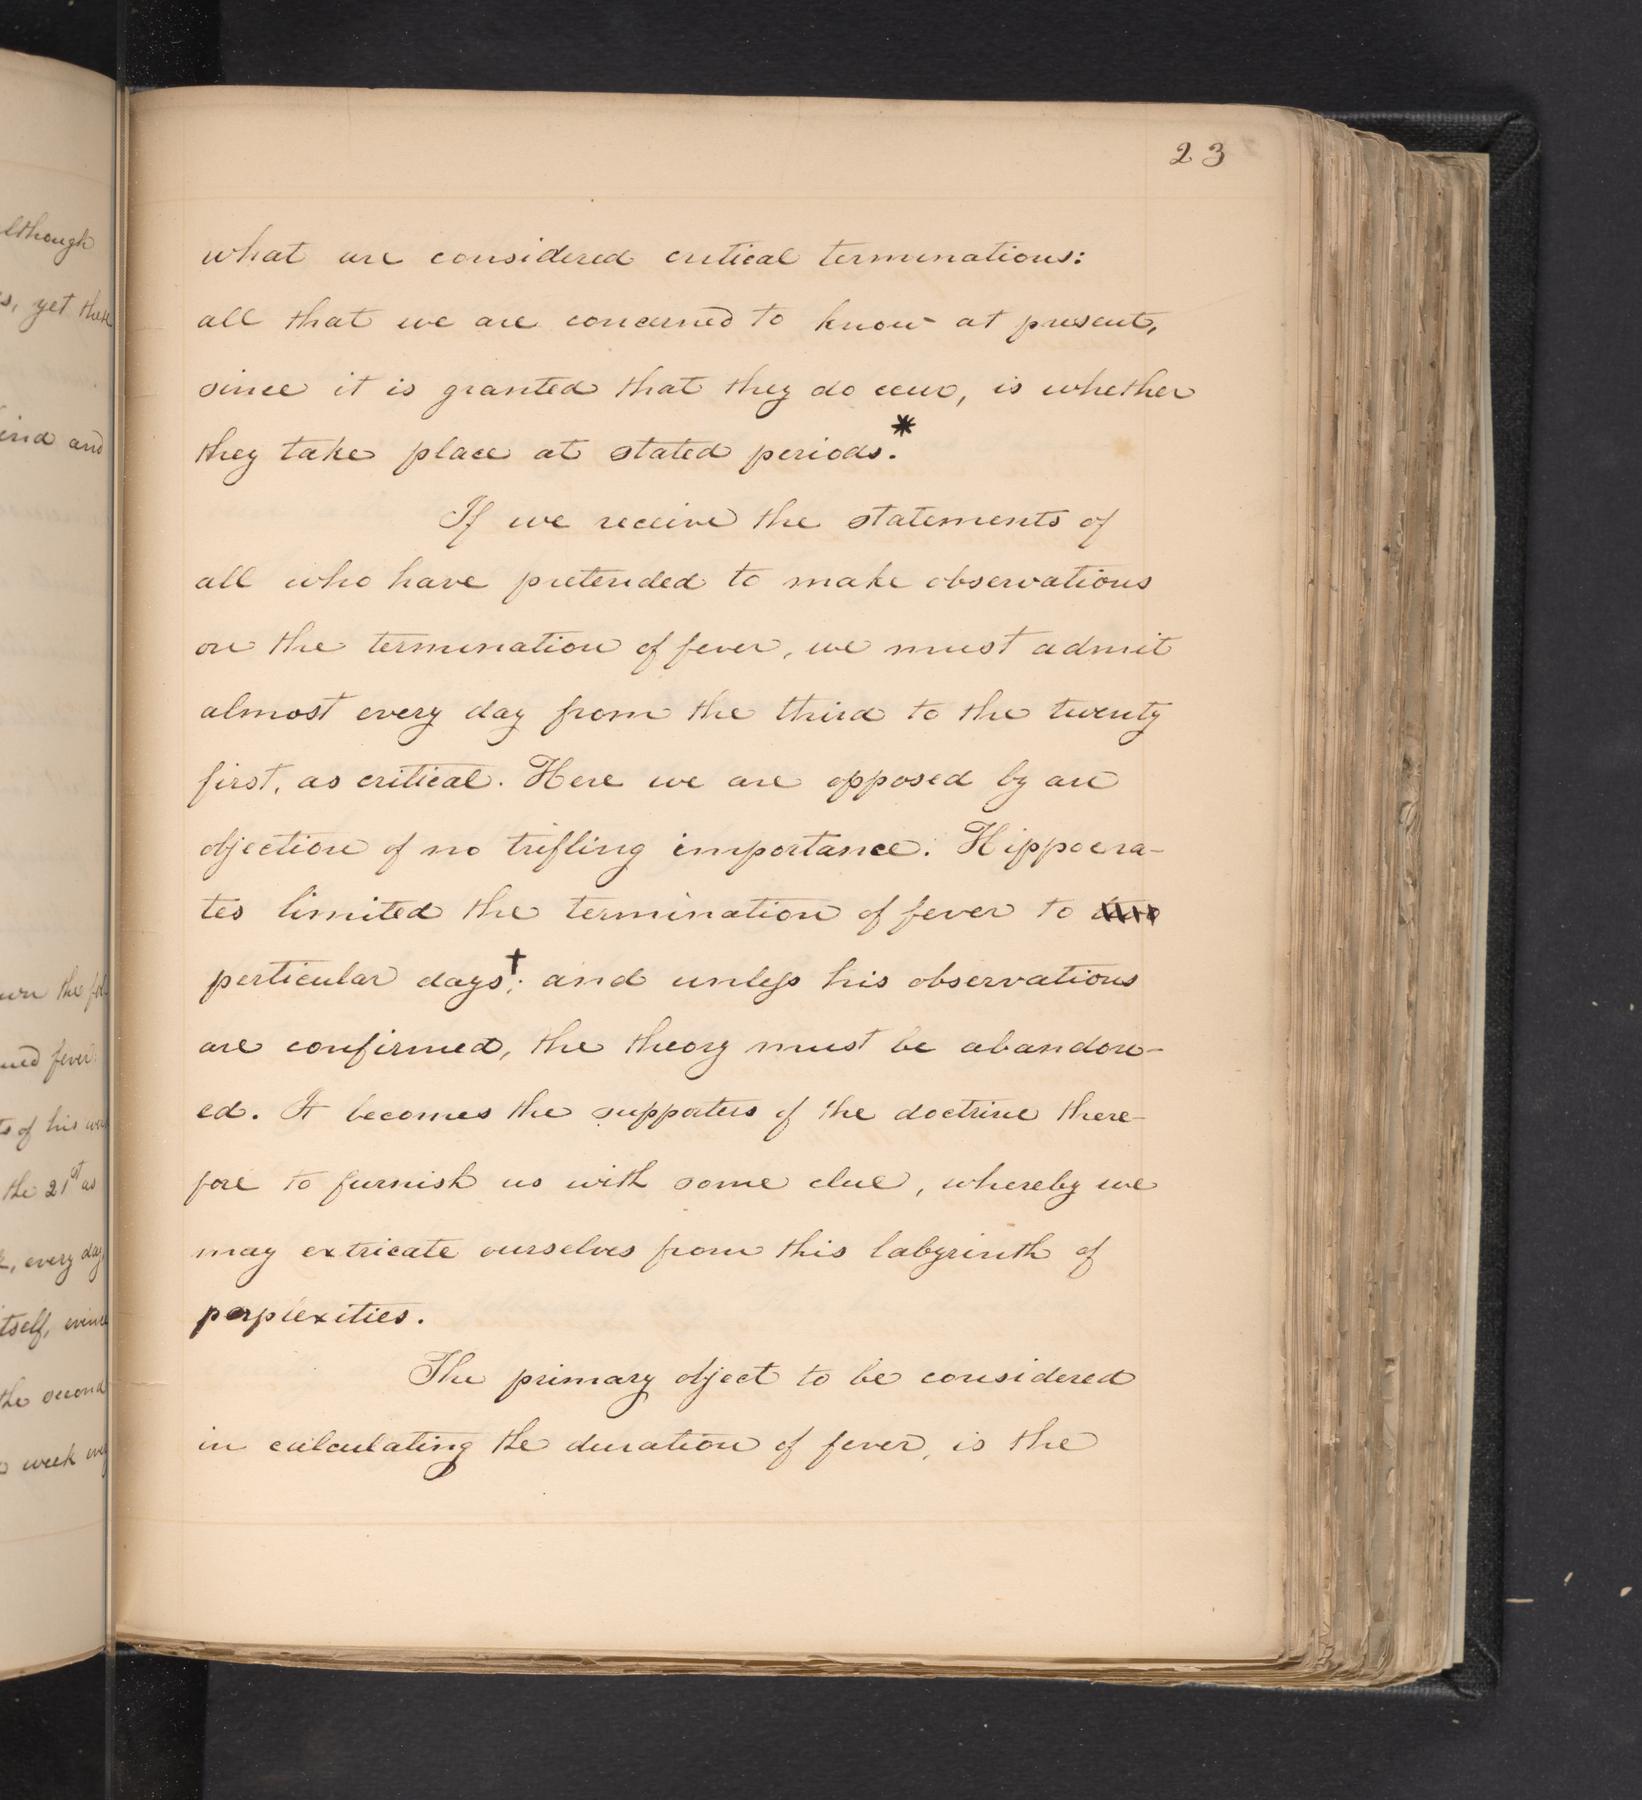 lthough
s, yet these
ind and
the
ued fever
ts of his
the 21st as
every day
itself,
the second
week
23
what are considered critical terminations:
all that we are concerned to know at present,
since it is granted that they do occur, is whether
they take place at stated periods.*
If we receive the statements of
all who have pretended to make observations
on the termination of fever, we must admit
almost every day from the third to the twenty
first, as critical. Here we are opposed by an
objection of no trifling importance. Hippocra-
tes limited the termination of fever to
perticular days†; and unless his observations
are confirmed, the theory must be abandon-
ed. It becomes the supporters of the doctrine there-
fore to furnish us with some clue, whereby we
may extricate ourselves from this labyrinth of
perplexities.
The primary object to be considered
in calculating the duration of fever, is the